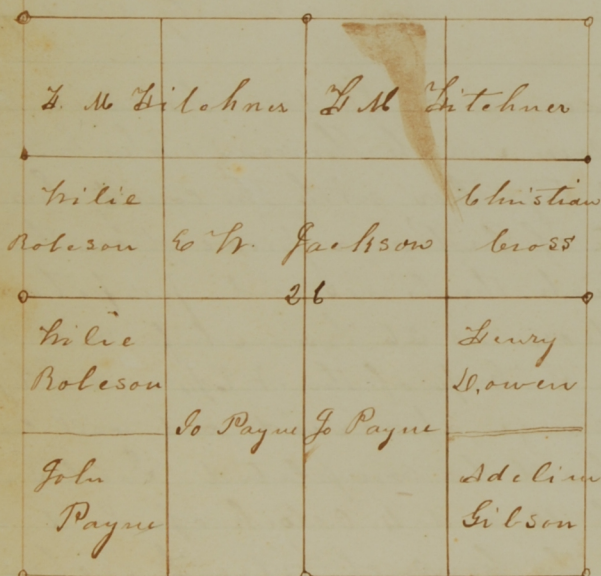 H. M Hitchner H M Hitchner
Wilie
Robeson
E W. Jackson
Christian
Cross
26
Wilie
Robeson
Henry
D. owen
Jo Payne Jo Payne
John
Payne
Adeline
Gibson